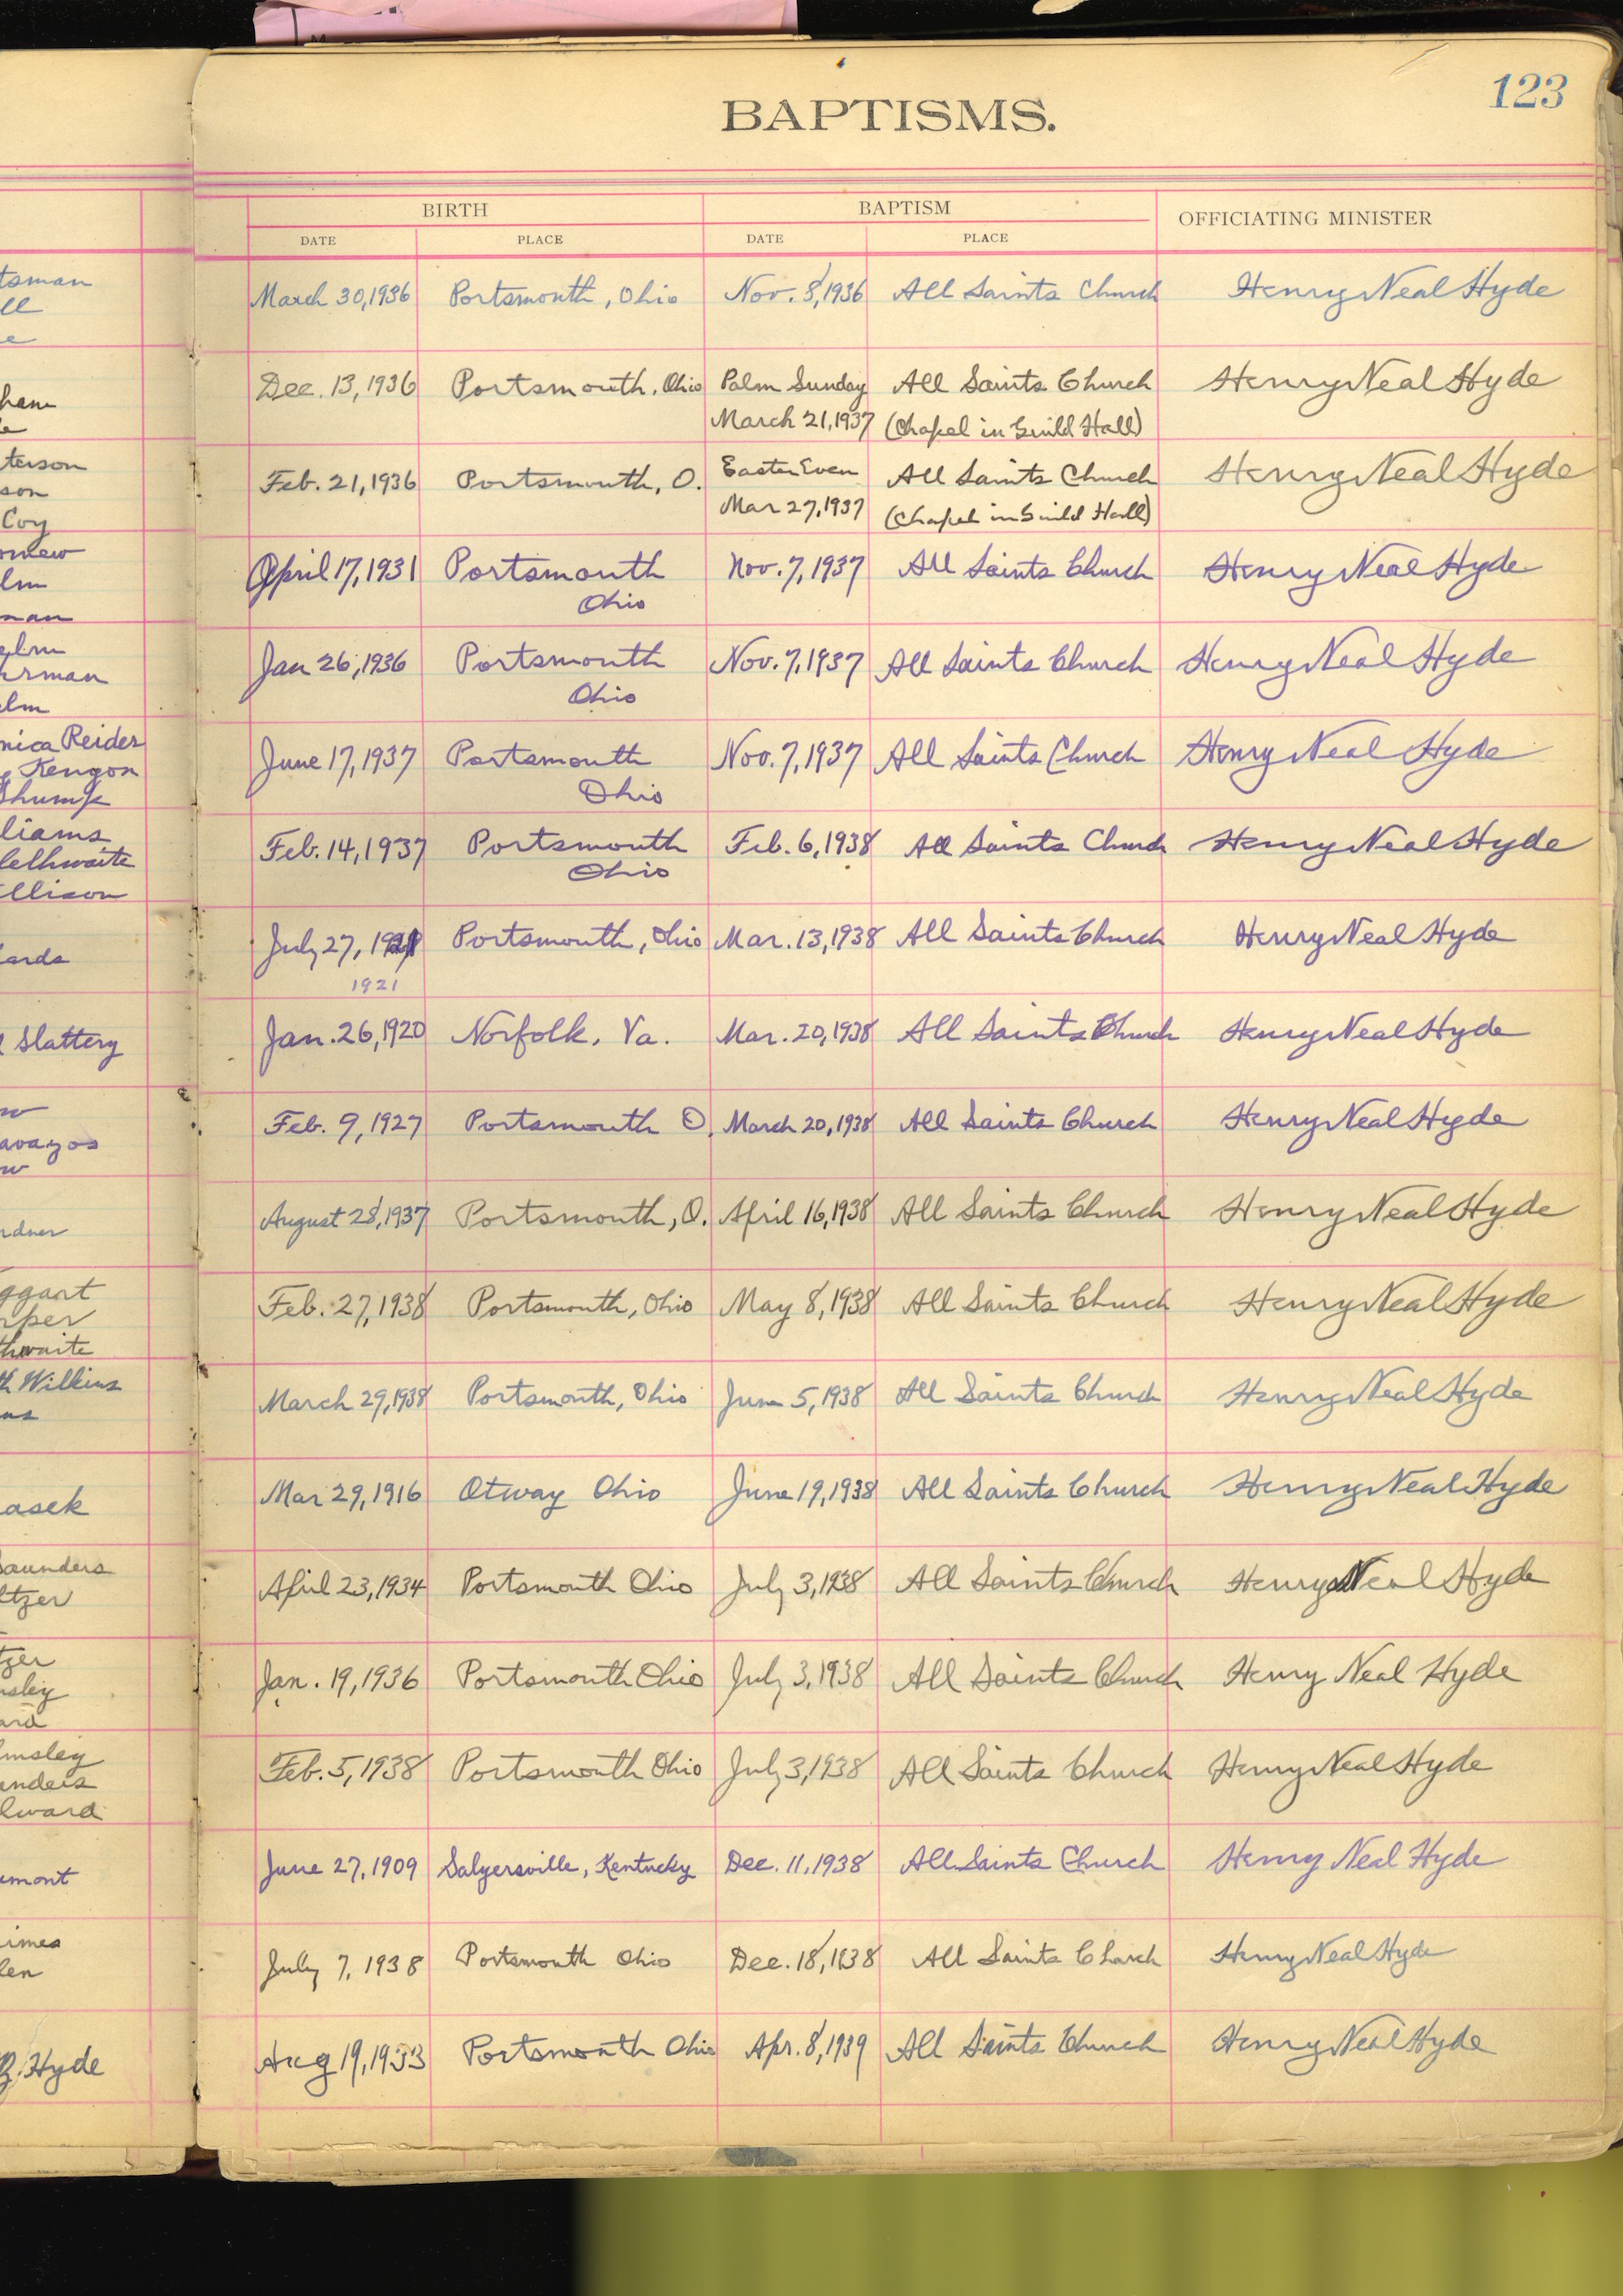 123
BAPTISMS.
BIRTH BAPTISM OFFICIATING MINISTER
DATE PLACE DATE PLACE
March 30, 1936 Portsmouth, Ohio Nov. 8, 1936 All Saints Church Henry Neal Hyde
Dec. 13, 1936 Portsmouth, Ohio Palm Sunday All Saints Church Henry Neal Hyde
March 21, 1937 (Chapel in Guild Hall)
Feb. 21, 1936 Portsmouth, O. Easter Even All Saints Church Henry Neal Hyde
Mar 27, 1937 (Chapel in Guild Hall)
April 17, 1931 Portsmouth Nov. 7, 1937 All Saints Church Henry Neal Hyde
Ohio
Jan 26, 1936 Portsmouth Nov. 7, 1937 All Saints Church Henry Neal Hyde
Ohio
June 17, 1937 Portsmouth Nov. 7, 1937 All Saints Church Henry Neal Hyde
Ohio
Feb. 14, 1937 Portsmouth Feb. 6, 1938 All Saints Church Henry Neal Hyde
Ohio
July 27, 1921 Portsmouth, Ohio Mar. 13, 1938 All Saints Church Henry Neal Hyde
1921
Jan. 26, 1920 Norfolk, Va. Mar. 20, 1938 All Saints Church Henry Neal Hyde
Feb. 9, 1927 Portsmouth O. March 20, 1938 All Saints Church Henry Neal Hyde
August 28, 1937 Portsmouth, O. April 16, 1938 All Saints Church Henry Neal Hyde
Feb. 27, 1938 Portsmouth, Ohio May 8, 1938 All Saints Church Henry Neal Hyde
March 29, 1938 Portsmouth, Ohio June 5, 1938 All Saints Church Henry Neal Hyde
Mar 29, 1916 Otway Ohio June 19, 1938 All Saints Church Henry Neal Hyde
April 23, 1934 Portsmouth Ohio July 3, 1938 All Saints Church Henry Neal Hyde
Jan. 19, 1936 Portsmouth Ohio July 3, 1938 All Saints Church Henry Neal Hyde
Feb. 5, 1938 Portsmouth Ohio July 3, 1938 All Saints Church Henry Neal Hyde
June 27, 1909 Salyersville, Kentucky Dec. 11, 1938 All Saints Church Henry Neal Hyde
July 7, 1938 Portsmouth Ohio Dec. 18, 1938 All Saints Church Henry Neal Hyde
Aug 19, 1933 Portsmouth Ohio Apr. 8, 1939 All Saints Church Henry Neal Hyde
tsman
ll
e
ham
e
terson
son
Coy
omew
lm
man
elm
erman
elm
nica Reider
Kenyon
Shump
liams
lethwaite
ellison
ards
Slattery
w
avazos
w
rdner
ggart
per
thwaite
h Wilkins
ns
asek
Saunders
ltzer
tzer
msley
ard
lmsley
unders
lward
umont
imes
len
B. Hyde